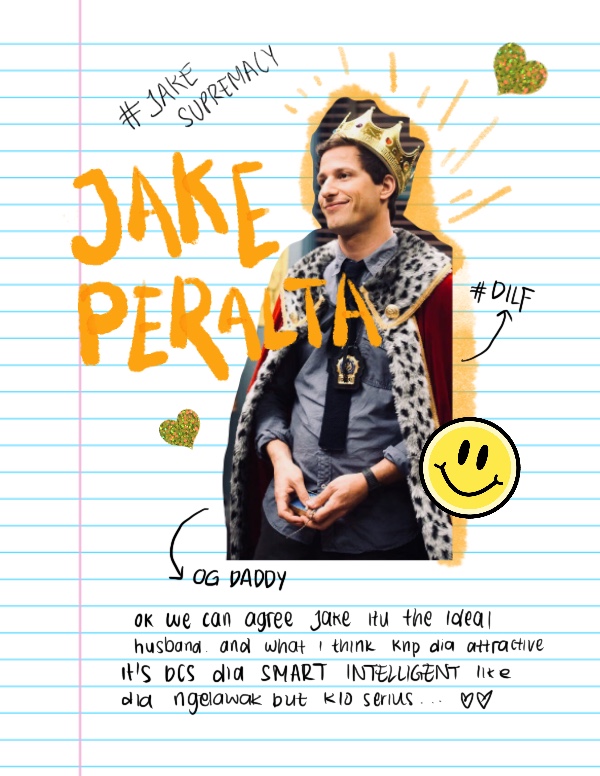 # JAKE
SUPREMACY
JAKE
PERALTA
# DILF
OG DADDY
OK WE can agree Jake itu the ideal
husband. and what i think knp dia attractive
it's bcs dia SMART INTELLIGENT like
dia ngelawak but klo serius... ♡♡